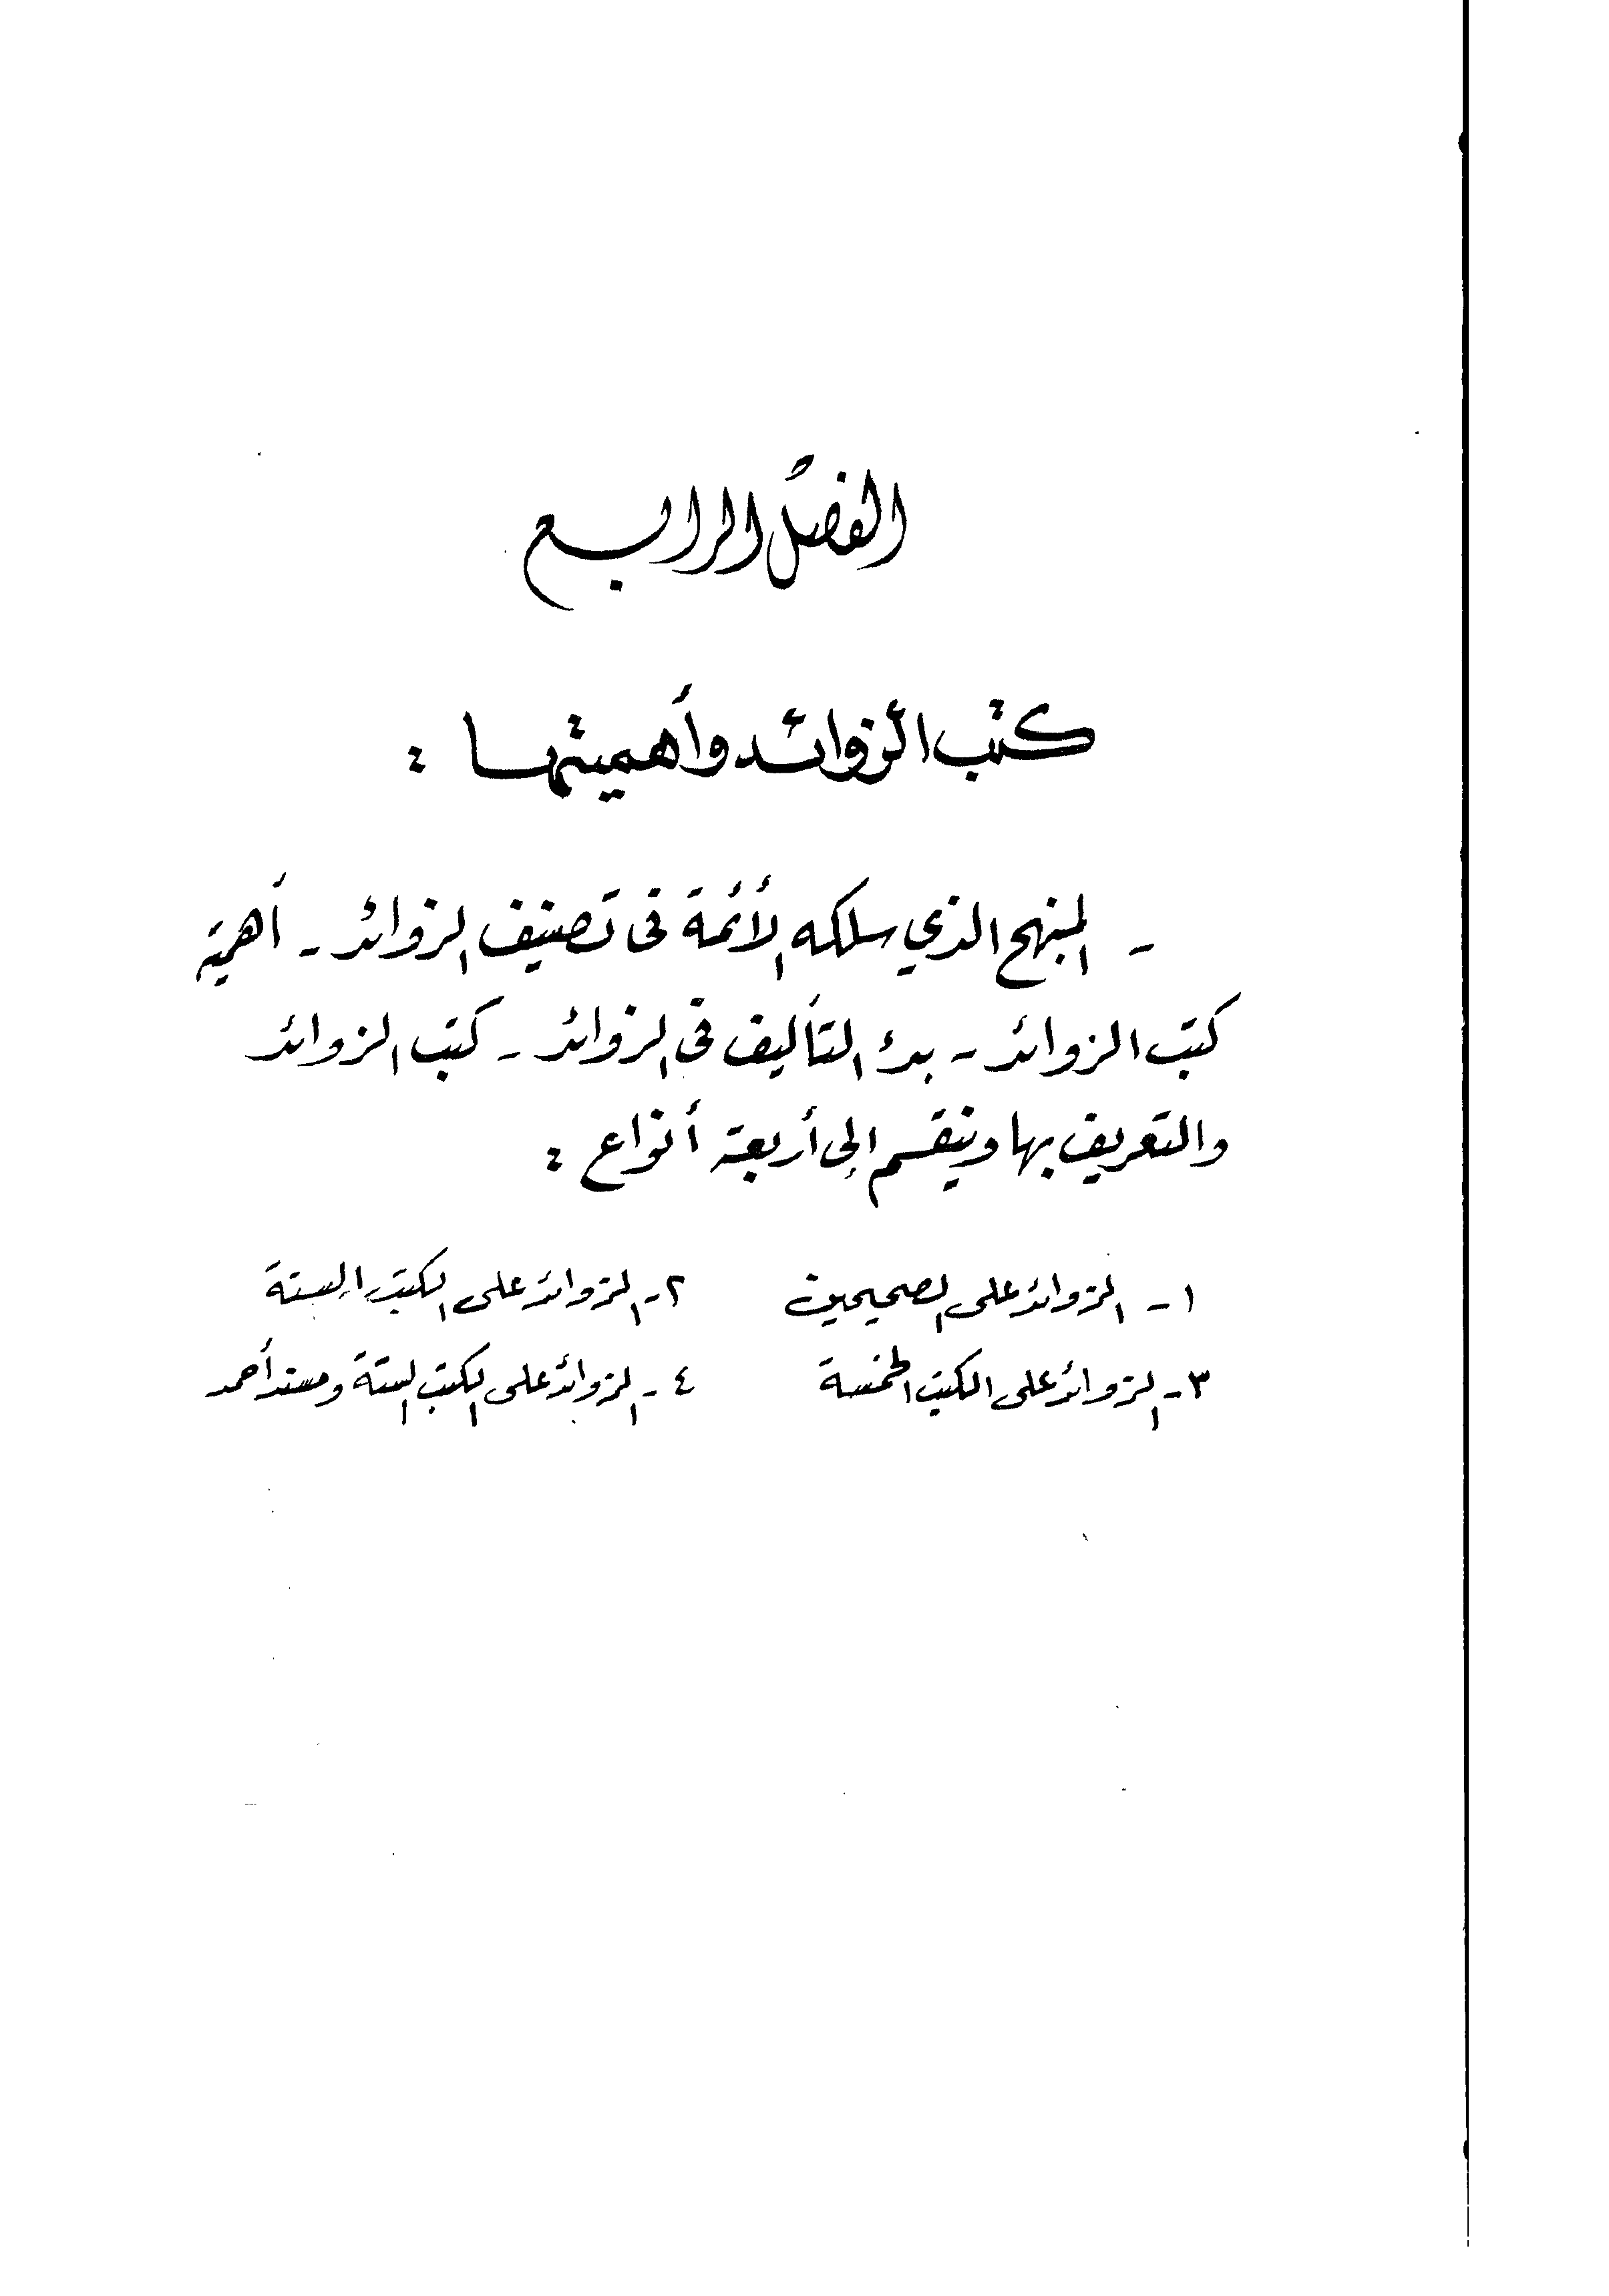 الفصل الرابع
كتب الزوائد وأهميتها :
- المنهج الذي سلكه الأئمة في تصنيف الزوائد - أهمية
كتب الزوائد - بدء التأليف في الزوائد - كتب الزوائد
والتعريف بها وينقسم إلى أربعة أنواع :
١ - الزوائد على الصحيحين ٢ - الزوائد على الكتب الستة
٣ - الزوائد على الكتب الخمسة ٤ - الزوائد على الكتب الستة ومسند أحمد